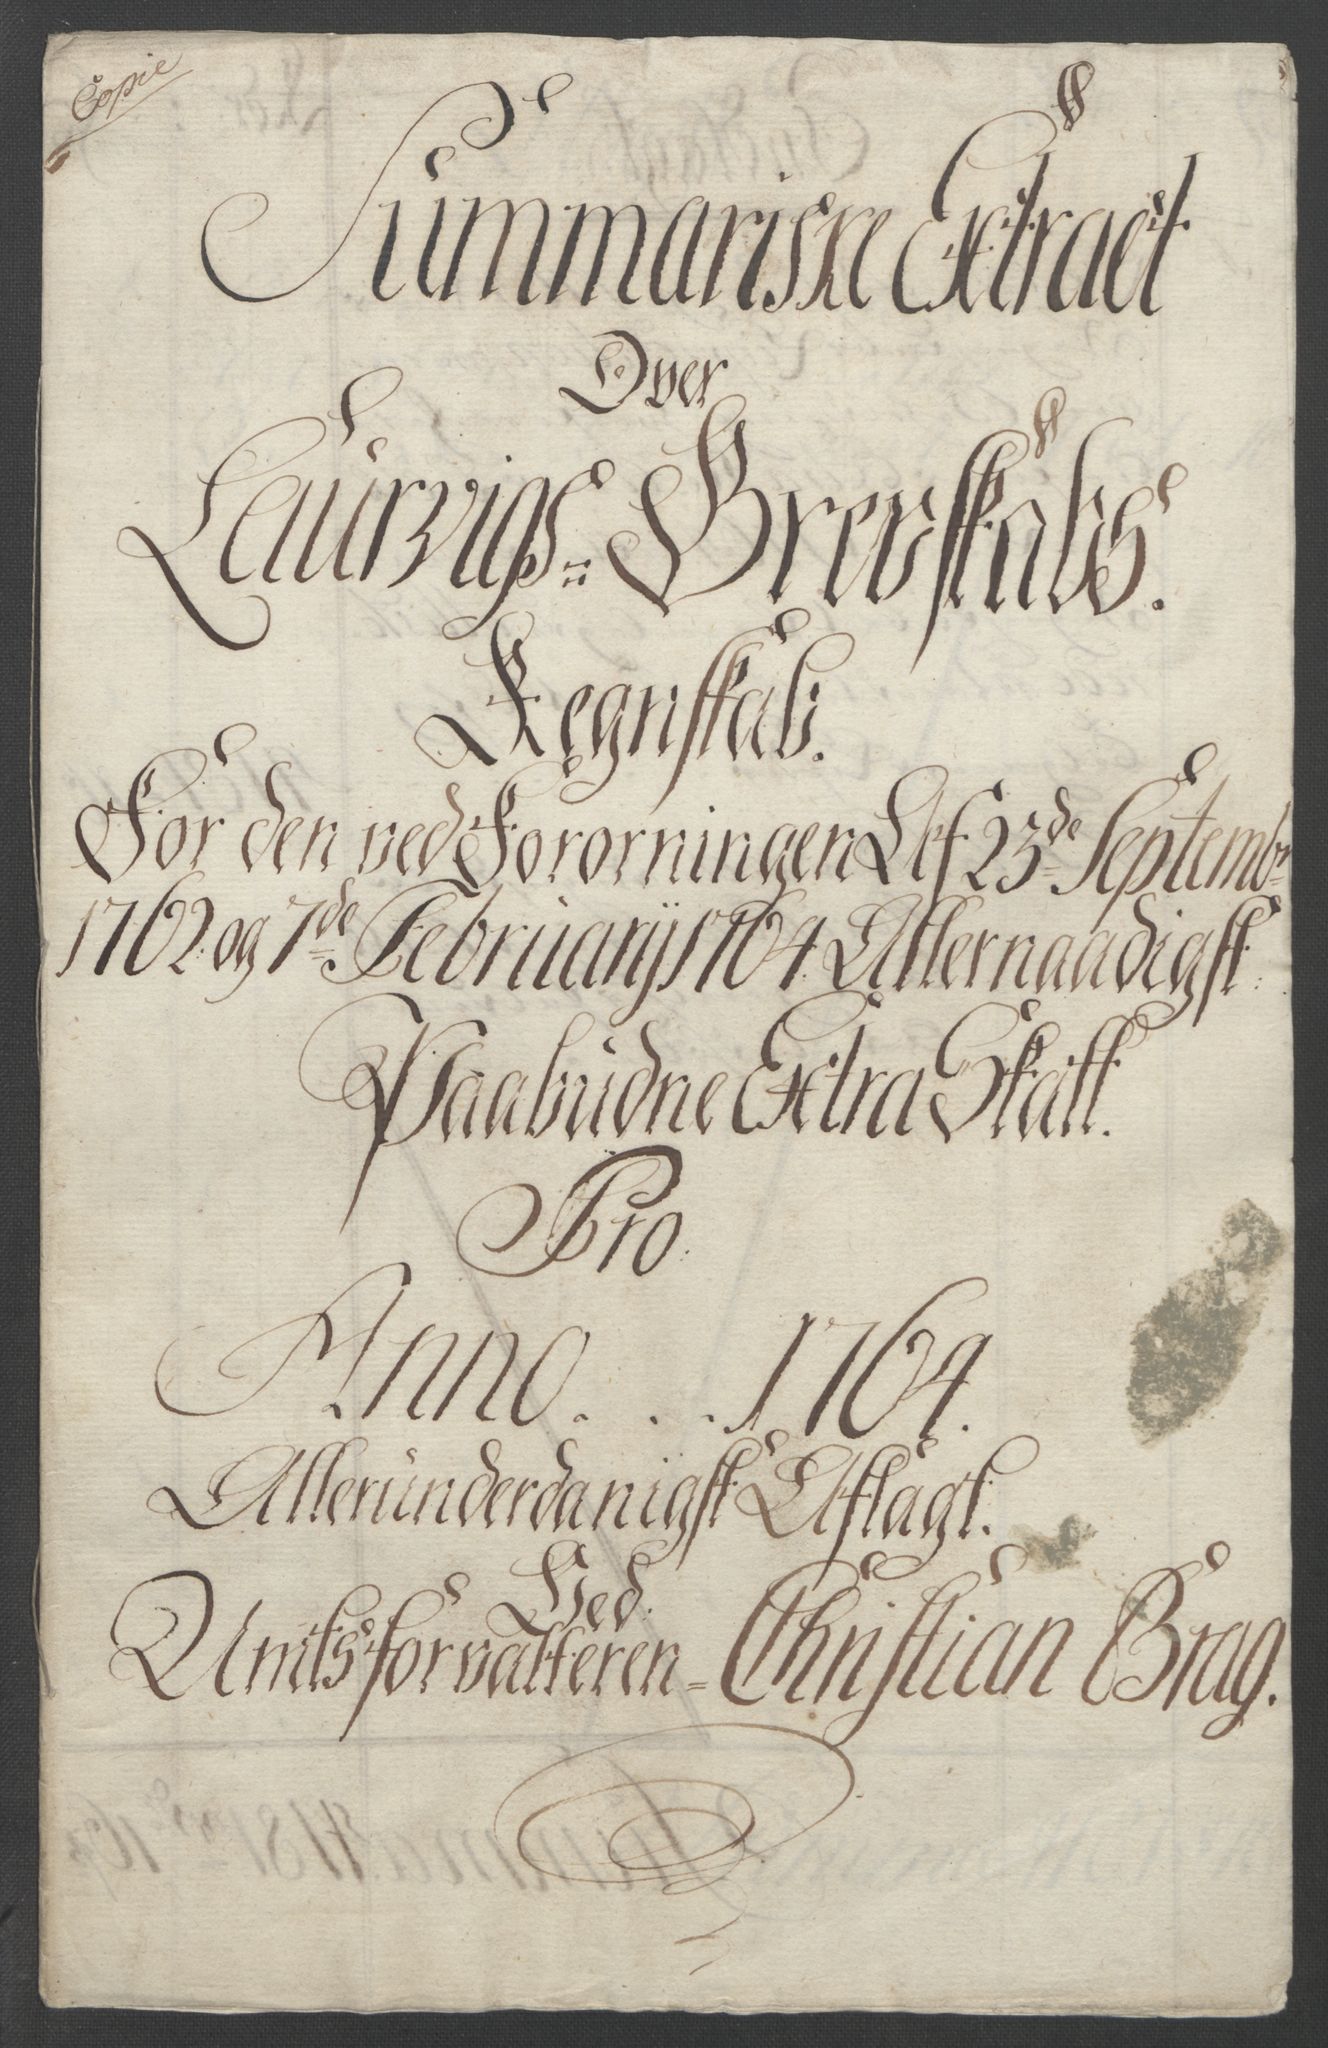 Copie
Summariske Extract
Over
Laurvigs Grevskabs.
Regnskab.
For den ved Fororningen Af 23de Septembr
1762 og 7de Februarij 1764 Allernaadigst
Paabudne Extra Skatt.
Pro
Anno . . . 1764.
Allerunderdanigst Aflagt.
Ved
Amtsforvalteren Christian Brag.